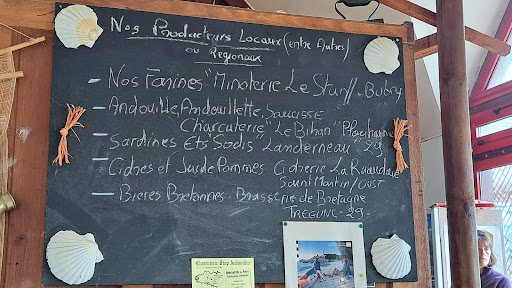 Nos Producteurs Locaux (entre Autres)
ou Régionaux
- Nos Farines "Minoterie Le Stunff" - Bubry
- Andouille, Andouillette, Saucisse
Charcuterie "Le Bihan"
- Sardines Ets Sodis "Landerneau" 29
- Cidres et Jus de Pommes Cidrerie La Ruaudaie
Saint Martin/OUST
- Bières Bretonnes Brasserie de Bretagne
TREGUNC - 29 -